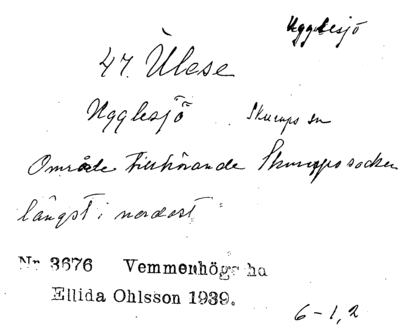 Ugglesjö
47. Ulese
Ugglesjö Skurups sn
Område tillhörande Skurups socken
längst i nordost
Nr 3676 Vemmenhögs hd
Ellida Ohlsson 1939.
6-1,2